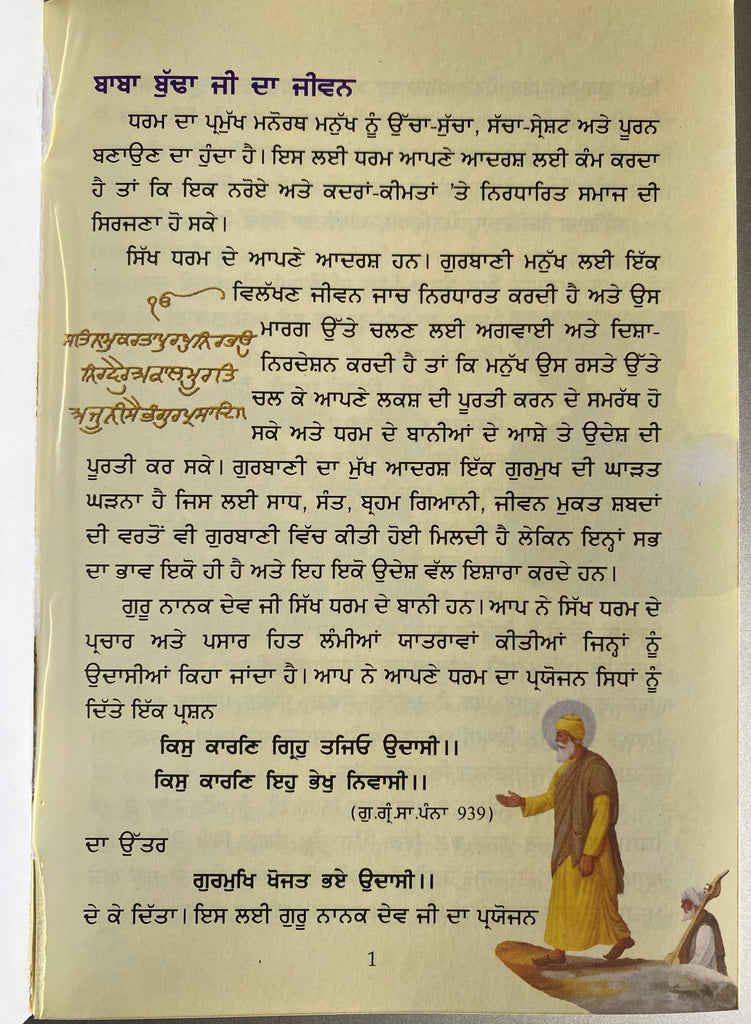 ਬਾਬਾ ਬੁੱਢਾ ਜੀ ਦਾ ਜੀਵਨ
ਧਰਮ ਦਾ ਪ੍ਰਮੁੱਖ ਮਨੋਰਥ ਮਨੁੱਖ ਨੂੰ ਉੱਚਾ-ਸੁੱਚਾ, ਸੱਚਾ-ਸ੍ਰੇਸ਼ਟ ਅਤੇ ਪੂਰਨ
ਬਣਾਉਣ ਦਾ ਹੁੰਦਾ ਹੈ। ਇਸ ਲਈ ਧਰਮ ਆਪਣੇ ਆਦਰਸ਼ ਲਈ ਕੰਮ ਕਰਦਾ
ਹੈ ਤਾਂ ਕਿ ਇਕ ਨਰੋਏ ਅਤੇ ਕਦਰਾਂ-ਕੀਮਤਾਂ 'ਤੇ ਨਿਰਧਾਰਿਤ ਸਮਾਜ ਦੀ
ਸਿਰਜਣਾ ਹੋ ਸਕੇ।
ਸਿੱਖ ਧਰਮ ਦੇ ਆਪਣੇ ਆਦਰਸ਼ ਹਨ। ਗੁਰਬਾਣੀ ਮਨੁੱਖ ਲਈ ਇੱਕ
ਵਿਲੱਖਣ ਜੀਵਨ ਜਾਚ ਨਿਰਧਾਰਤ ਕਰਦੀ ਹੈ ਅਤੇ ਉਸ
ਮਾਰਗ ਉੱਤੇ ਚਲਣ ਲਈ ਅਗਵਾਈ ਅਤੇ ਦਿਸ਼ਾ-
ਨਿਰਦੇਸ਼ਨ ਕਰਦੀ ਹੈ ਤਾਂ ਕਿ ਮਨੁੱਖ ਉਸ ਰਸਤੇ ਉੱਤੇ
ਚਲ ਕੇ ਆਪਣੇ ਲਕਸ਼ ਦੀ ਪੂਰਤੀ ਕਰਨ ਦੇ ਸਮਰੱਥ ਹੋ
ਸਕੇ ਅਤੇ ਧਰਮ ਦੇ ਬਾਨੀਆਂ ਦੇ ਆਸ਼ੇ ਤੇ ਉਦੇਸ਼ ਦੀ
ੴ
ਸਤਿਨਾਮੁਕਰਤਾਪੁਰਖੁਨਿਰਭਉ
ਨਿਰਵੈਰੁਅਕਾਲਮੂਰਤਿ
ਅਜੂਨੀਸੈਭੰਗੁਰਪ੍ਰਸਾਦਿ॥
ਪੂਰਤੀ ਕਰ ਸਕੇ। ਗੁਰਬਾਣੀ ਦਾ ਮੁੱਖ ਆਦਰਸ਼ ਇੱਕ ਗੁਰਮੁਖ ਦੀ ਘਾੜਤ
ਘੜਨਾ ਹੈ ਜਿਸ ਲਈ ਸਾਧ, ਸੰਤ, ਬ੍ਰਹਮ ਗਿਆਨੀ, ਜੀਵਨ ਮੁਕਤ ਸ਼ਬਦਾਂ
ਦੀ ਵਰਤੋਂ ਵੀ ਗੁਰਬਾਣੀ ਵਿੱਚ ਕੀਤੀ ਹੋਈ ਮਿਲਦੀ ਹੈ ਲੇਕਿਨ ਇਨ੍ਹਾਂ ਸਭ
ਦਾ ਭਾਵ ਇਕੋ ਹੀ ਹੈ ਅਤੇ ਇਹ ਇਕੋ ਉਦੇਸ਼ ਵੱਲ ਇਸ਼ਾਰਾ ਕਰਦੇ ਹਨ।
ਗੁਰੂ ਨਾਨਕ ਦੇਵ ਜੀ ਸਿੱਖ ਧਰਮ ਦੇ ਬਾਨੀ ਹਨ। ਆਪ ਨੇ ਸਿੱਖ ਧਰਮ ਦੇ
ਪ੍ਰਚਾਰ ਅਤੇ ਪਸਾਰ ਹਿਤ ਲੰਮੀਆਂ ਯਾਤਰਾਵਾਂ ਕੀਤੀਆਂ ਜਿਨ੍ਹਾਂ ਨੂੰ
ਉਦਾਸੀਆਂ ਕਿਹਾ ਜਾਂਦਾ ਹੈ। ਆਪ ਨੇ ਆਪਣੇ ਧਰਮ ਦਾ ਪ੍ਰਯੋਜਨ ਸਿਧਾਂ ਨੂੰ
ਦਿੱਤੇ ਇੱਕ ਪ੍ਰਸ਼ਨ
ਕਿਸੁ ਕਾਰਣਿ ਗ੍ਰਿਹੁ ਤਜਿਓ ਉਦਾਸੀ।।
ਕਿਸੁ ਕਾਰਣਿ ਇਹੁ ਭੇਖੁ ਨਿਵਾਸੀ।।
(ਗੁ.ਗ੍ਰੰ.ਸਾ.ਪੰਨਾ 939)
ਦਾ ਉੱਤਰ
ਗੁਰਮੁਖਿ ਖੋਜਤ ਭਏ ਉਦਾਸੀ।।
ਦੇ ਕੇ ਦਿੱਤਾ। ਇਸ ਲਈ ਗੁਰੂ ਨਾਨਕ ਦੇਵ ਜੀ ਦਾ ਪ੍ਰਯੋਜਨ
1